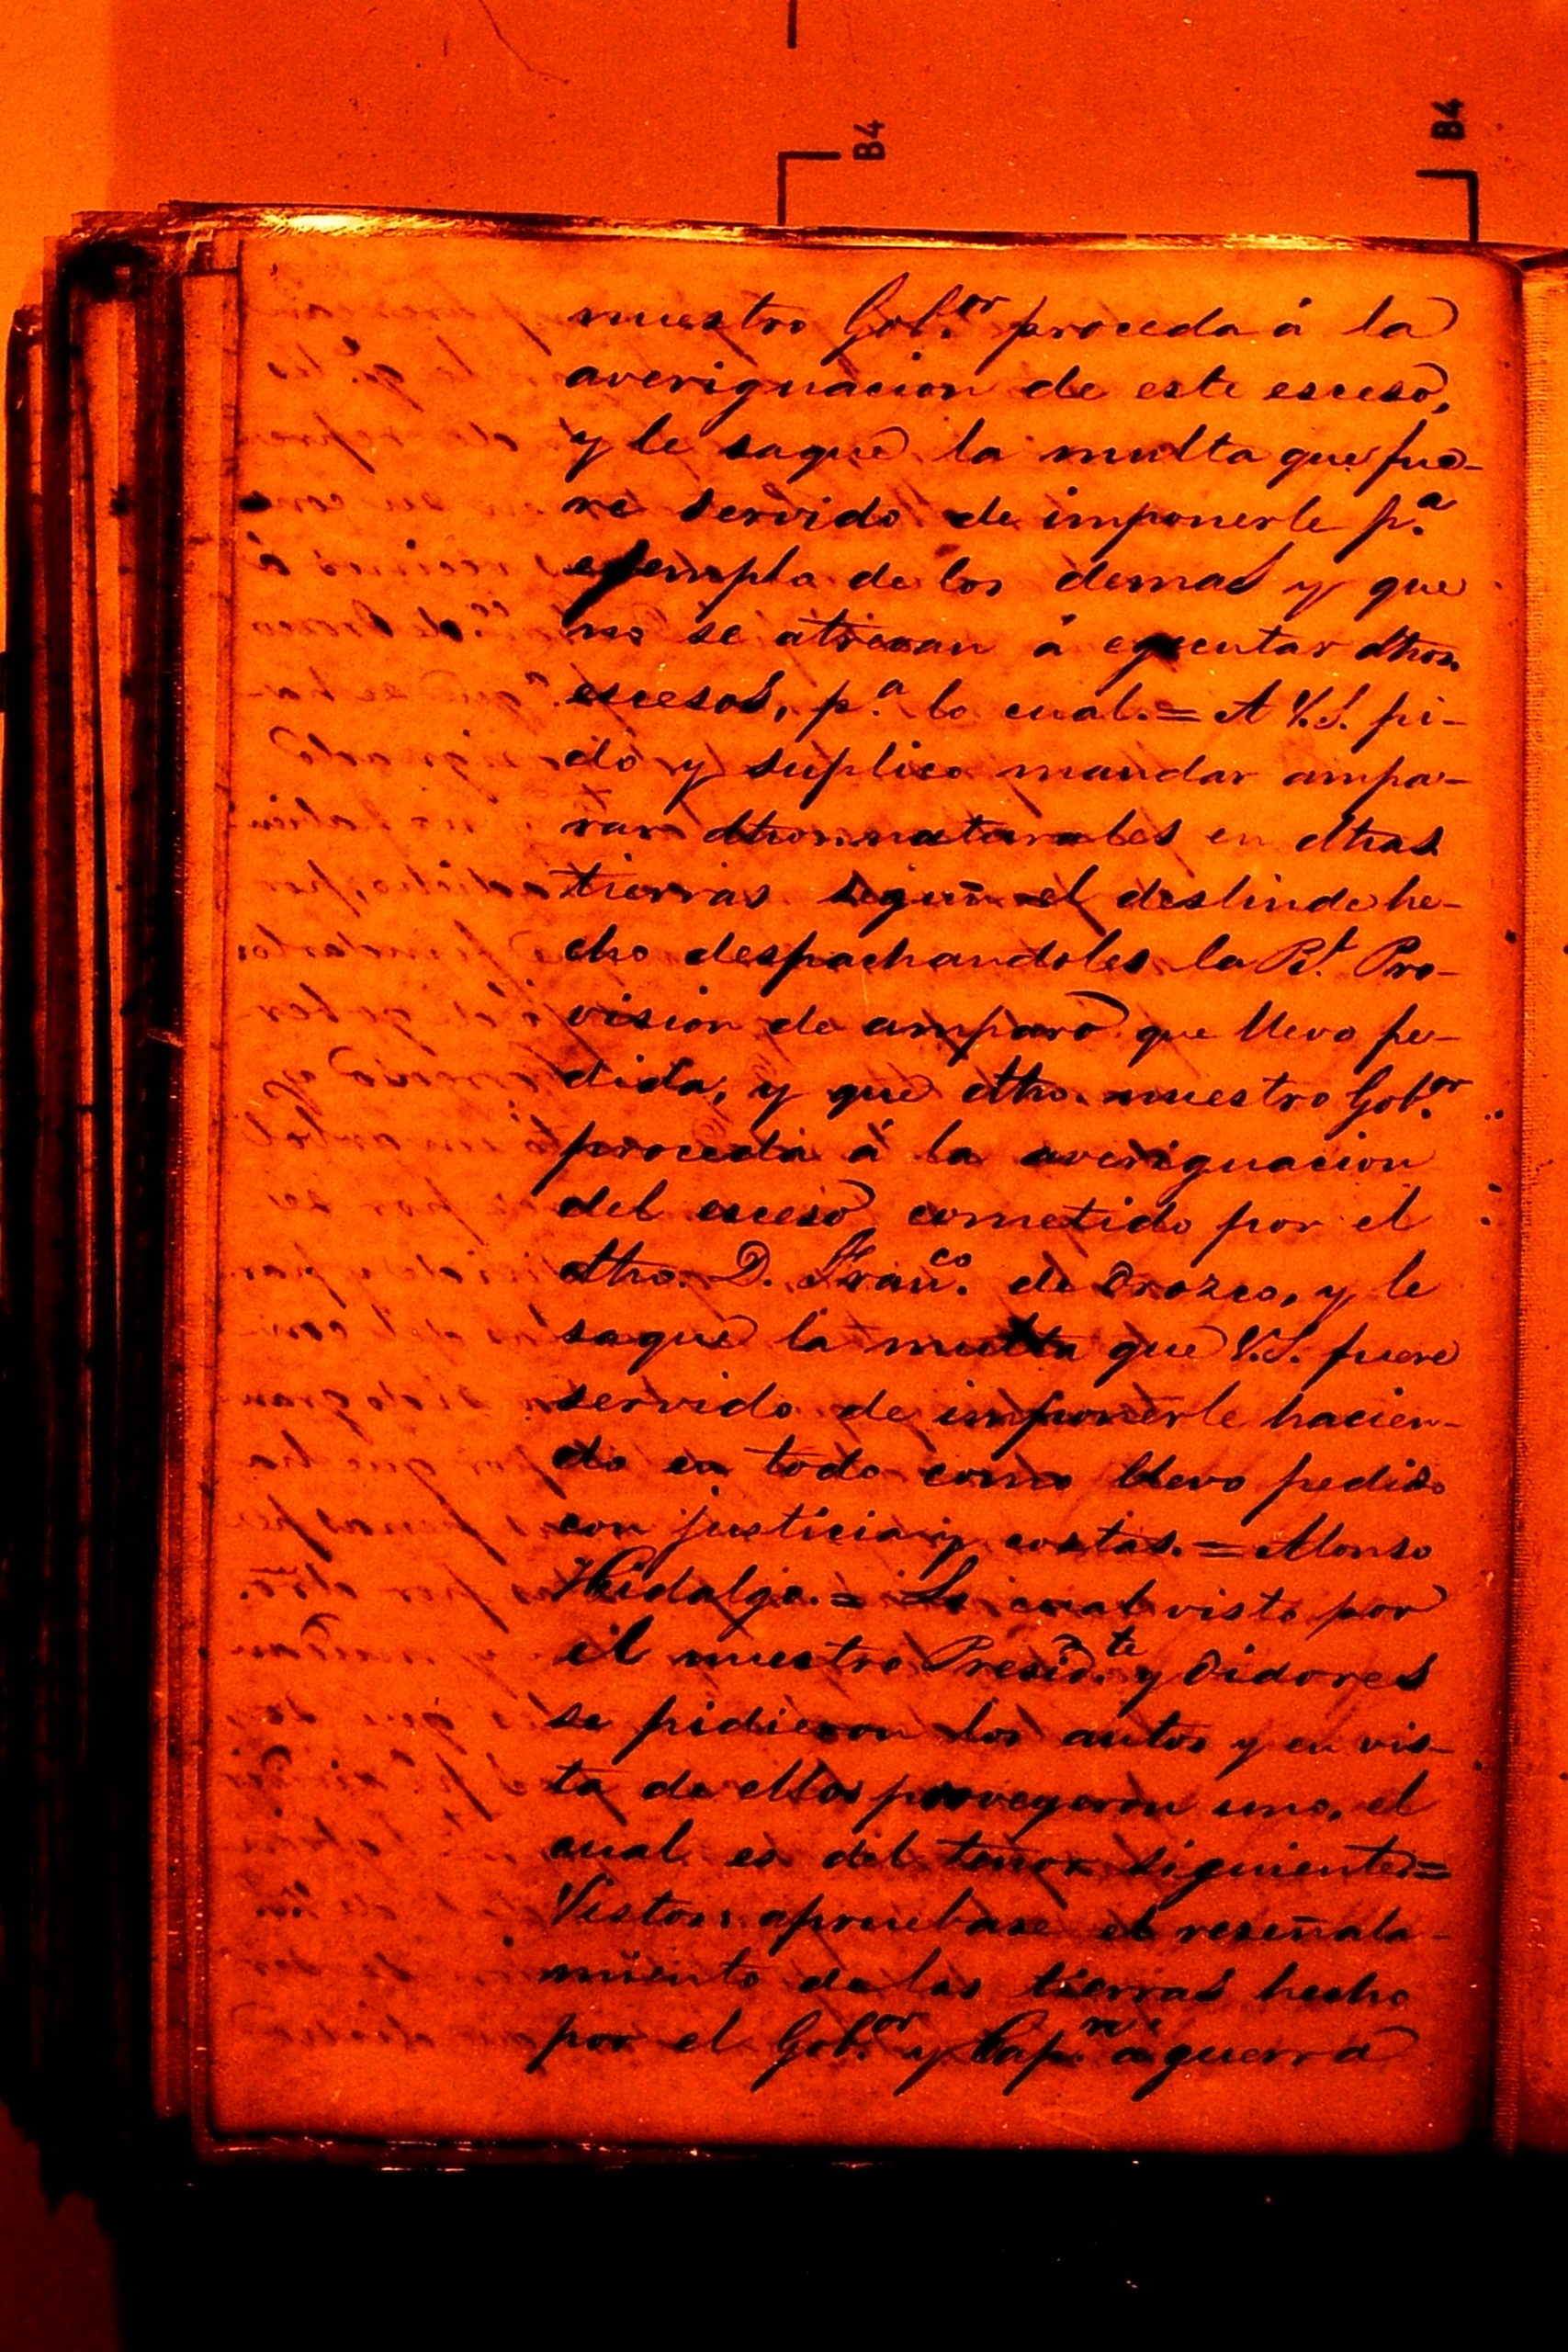 B4
B4
nuestro Gob.or proceda á la
averiguacion de este esceso,
y le saque la multa que fue-
re servido de imponerle p.a
ejemplo de los demas y que
no se atrevan á ejecutar dhos.
escesos, p.a lo cual. = A V.S. pi-
do y suplico mandar ampa-
rar dhos. naturales en dhas
tierras segun el deslinde he-
cho despachandoles la Rl. Pro-
vision de amparo que llevo pe-
dida, y que dho. nuestro Gob.or
proceda á la averiguacion
del esceso cometido por el
dho. D. Fran.co de Orozco, y le
saque la multa que V.S. fuere
servido de imponerle hacien-
do en todo como llevo pedido
con justicia y costas. = Alonso
Hidalgo. = Lo cual visto por
el nuestro Presid.te y Oidores
se pidieron los autos y en vis-
ta de ellos proveyeron uno, el
cual es del tenor siguiente =
Vistos: apruebase el reseñala-
miento de las tierras hecho
por el Gob.or y Cap.n á guerra